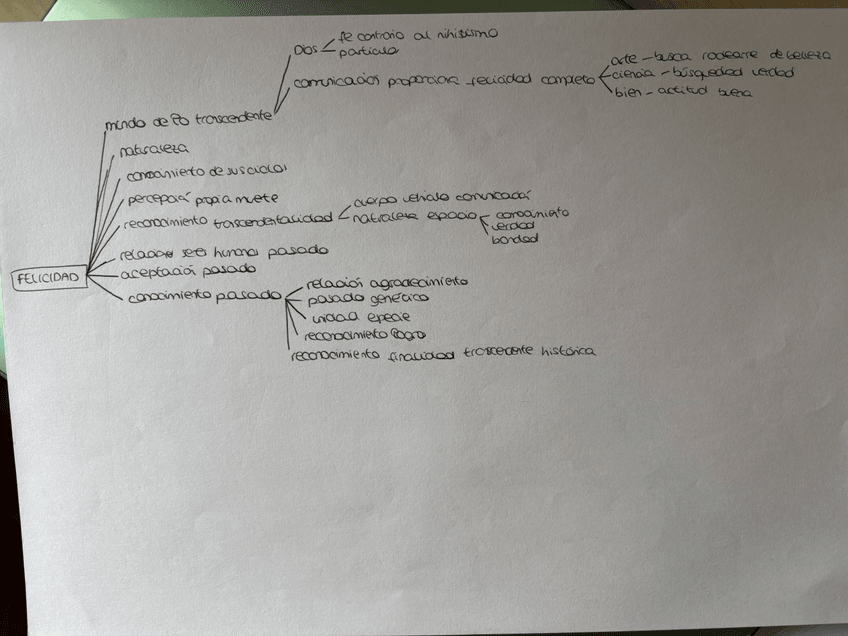 Dios
fe contrario al nihilismo
particula
comunicación proporciona felicidad completa
arte - busca rodearse de belleza
ciencia - búsquedad verdad
bien - actitud buena
mundo de lo trascendente
naturaleza
conocimiento de sus ciclos
percepción propia muete
reconocimiento trascendentalidad
cuerpo vehiculo comunicación
naturaleza espacio
conocimiento
verdad
bondad
relación seres humanos pasado
FELICIDAD
aceptación pasado
conocimiento pasado
relación agradecimiento
pasado genético
unidad epecie
reconocimiento logro
reconocimiento finalidad trascecente histórica